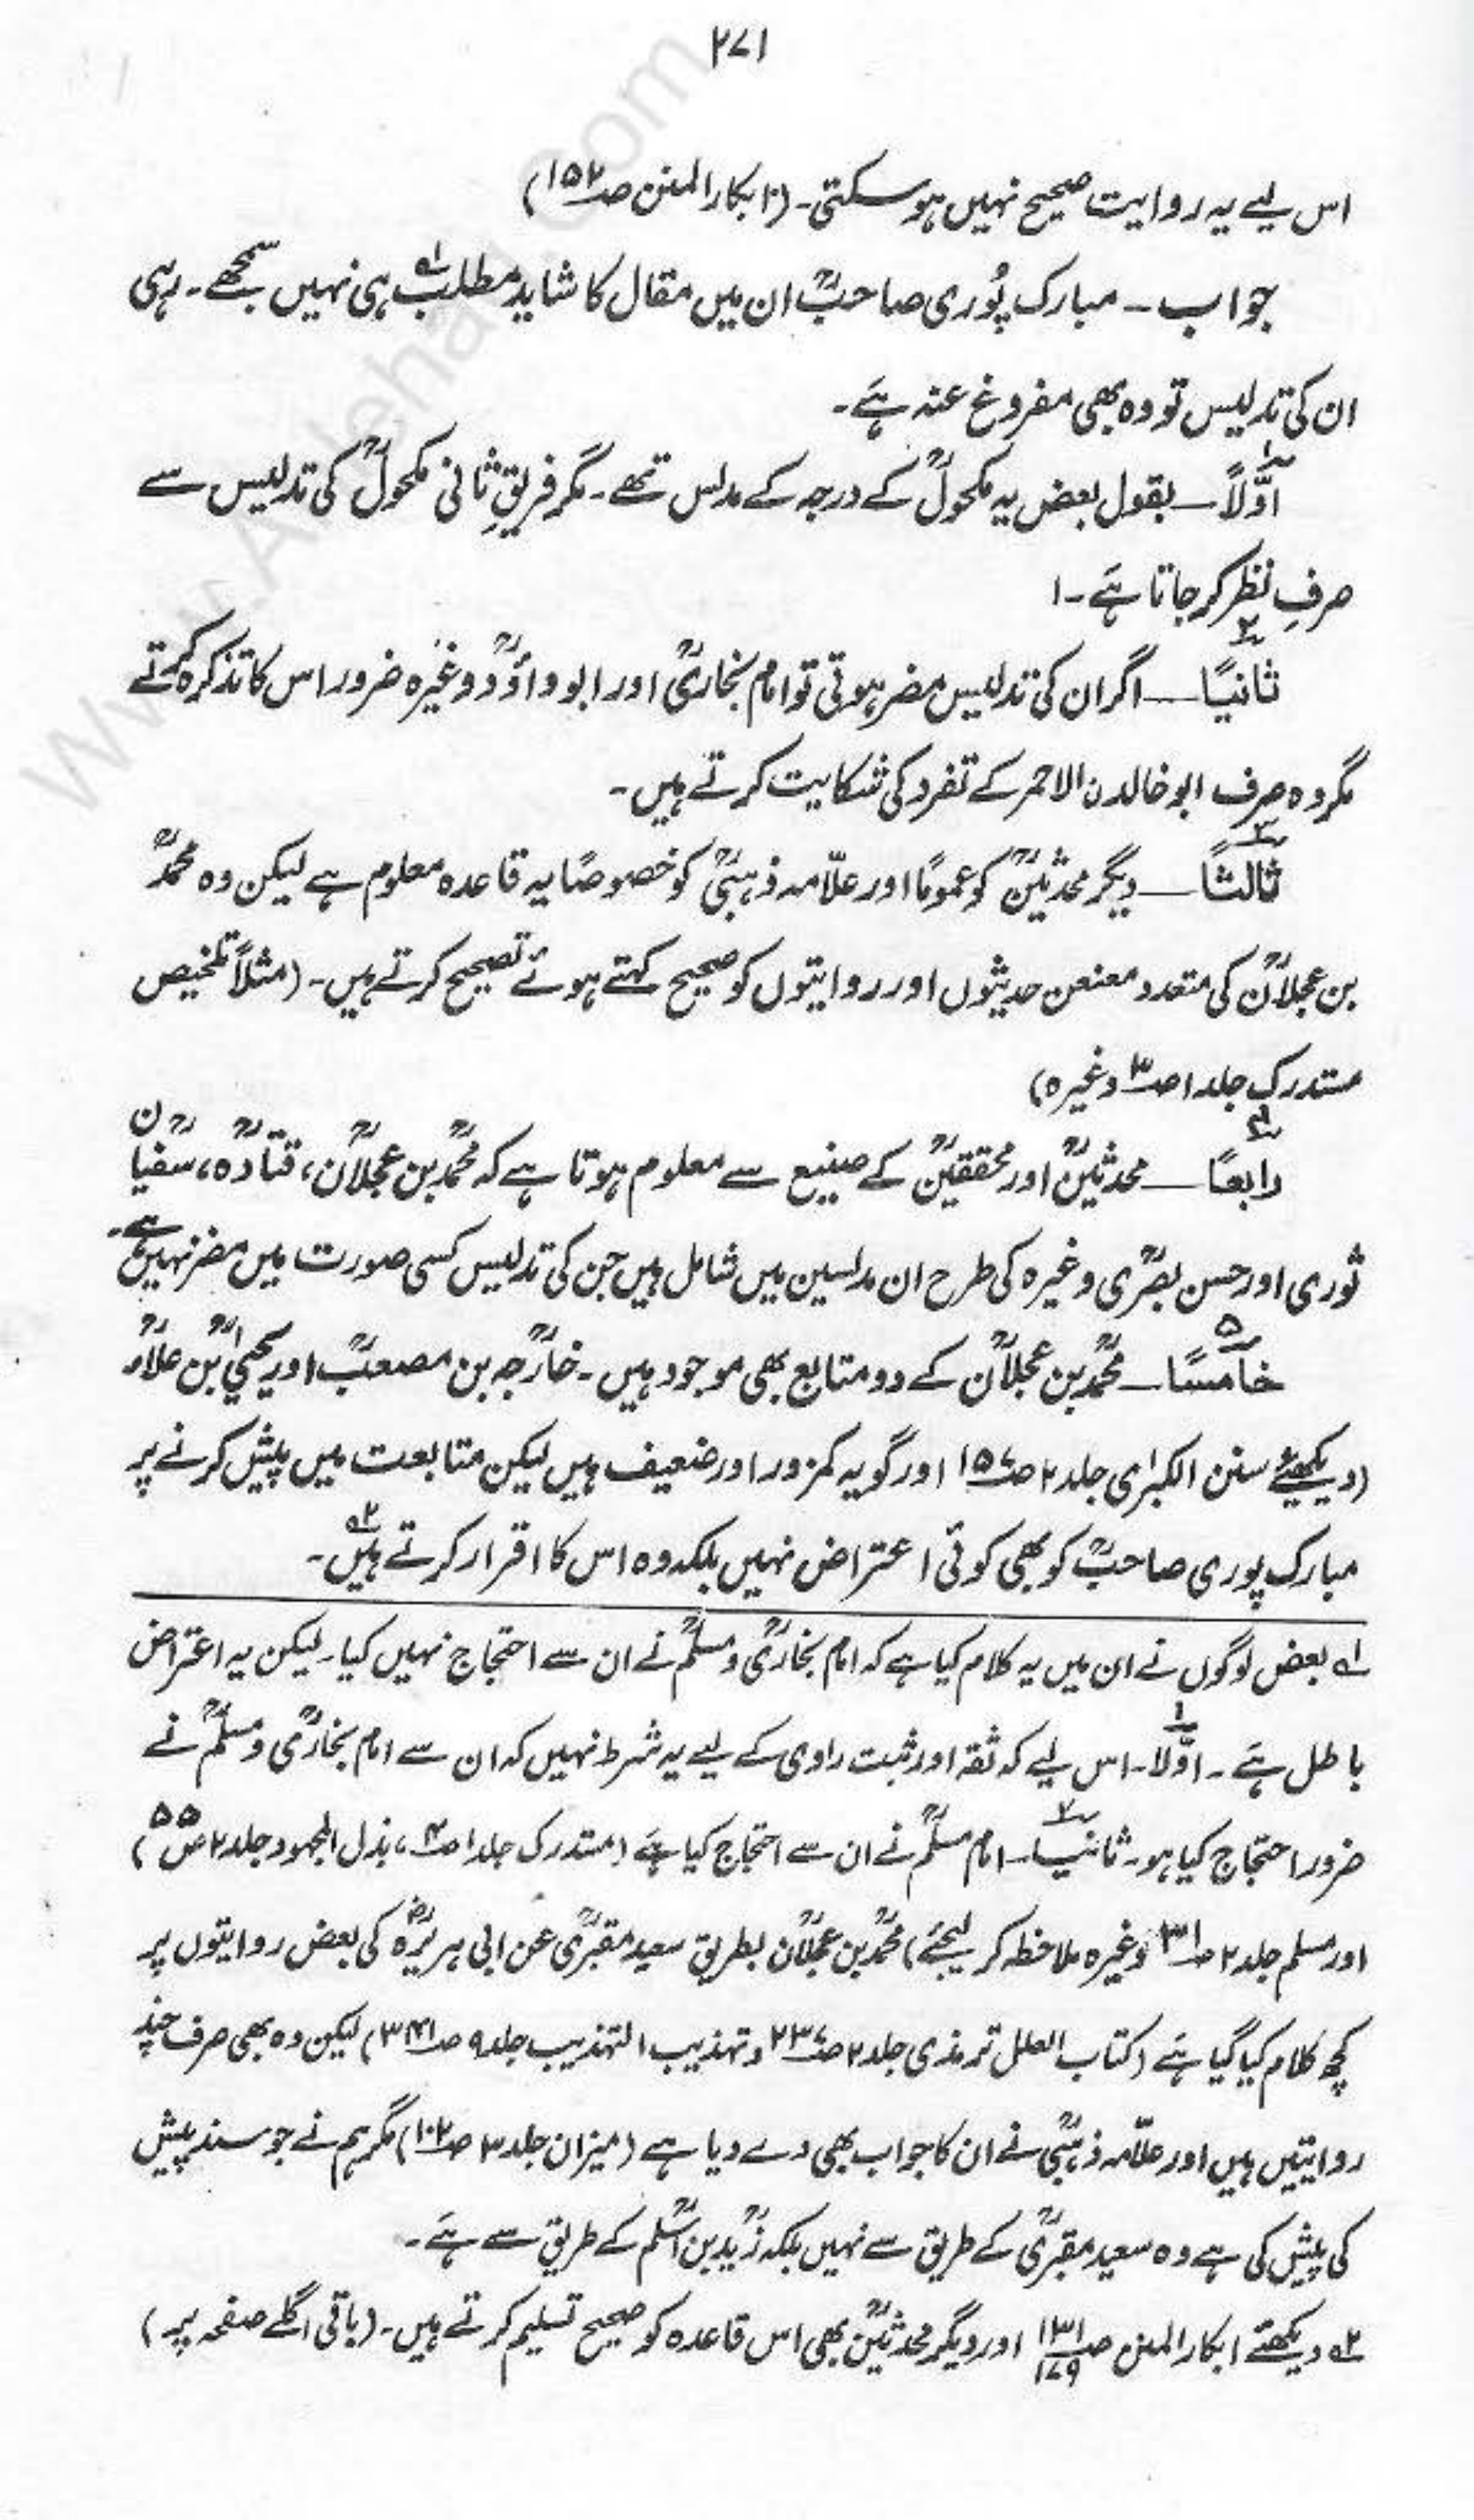 ۲۷۱
اس لیے یہ روایت صحیح نہیں ہو سکتی۔ (ابکار المنن ص۱۵۲)
جواب۔ مبارک پُوری صاحبؒ ان میں مقال کا شاید مطلب لہ ہی نہیں سمجھے۔ رہی
ان کی تدلیس تو وہ بھی مفروغ عنہ ہَے۔
اوّلاً ۱ـــ بقول بعض یہ مکحولؒ کے درجہ کے مدلس تھے۔ مگر فریقِ ثانی مکحولؒ کی تدلیس سے
صرفِ نظر کر جاتا ہَے۔ ۱
ثانیًا ۲ـــ اگر ان کی تدلیس مضر ہوتی تو امام بخاریؒ اور ابو داؤدؒ وغیرہ ضرور اس کا تذکرہ کرتے
مگر وہ صرف ابو خالدن الاحمر کے تفرد کی شکایت کرتے ہیں۔
ثالثاً ۳ـــ دیگر محدثینؒ کو عمومًا اور علّامہ ذہبیؒ کو خصوصًا یہ قاعدہ معلوم ہے لیکن وہ محمدؒ
بن عجلانؒ کی متعدد معنعن حدیثوں اور روایتوں کو صحیح کہتے ہوئے تصحیح کرتے ہیں۔ (مثلاً تلخیص
مستدرک جلد ۱ ص۳ وغیرہ)
رابعًا ۴ـــ محدثینؒ اور محققینؒ کے صنیع سے معلوم ہوتا ہے کہ محمدؒ بن عجلانؒ، قتادہؒ، سفیانؒ
ثوری اور حسن بصریؒ وغیرہ کی طرح ان مدلسین میں شامل ہیں جن کی تدلیس کسی صورت میں مضر نہیں ہے۔
خامسًا ۵ـــ محمدؒ بن عجلانؒ کے دو متابع بھی موجود ہیں۔ خارجہؒ بن مصعبؒ اور یحییٰؒ بن علاءؒ
(دیکھئے سنن الکبرٰی جلد ۲ ص۱۵۷ اور گو یہ کمزور اور ضعیف ہیں لیکن متابعت میں پیش کرنے پر
مبارک پوری صاحبؒ کو بھی کوئی اعتراض نہیں بلکہ وہ اس کا اقرار کرتے ہیں۲ہ۔
لہ بعض لوگوں نے ان میں یہ کلام کیا ہے کہ امام بخاریؒ و مسلمؒ نے ان سے احتجاج نہیں کیا۔ لیکن یہ اعتراض
باطل ہَے۔ اوّلاً ۱۔ اس لیے کہ ثقہ اور ثبت راوی کے لیے یہ شرط نہیں کہ ان سے امام بخاریؒ و مسلمؒ نے
ضرور احتجاج کیا ہو۔ ثانیًا ۲۔ امام مسلمؒ نے ان سے احتجاج کیا ہَے (مستدرک جلد ۱ ص۳، بذل المجہود جلد ۲ ص۵۵)
اور مسلم جلد ۲ ص۳۱ وغیرہ ملاحظہ کر لیجئے) محمدؒ بن عجلانؒ بطریق سعید مقبریؒ عن ابی ہریرہؓ کی بعض روایتوں پر
کچھ کلام کیا گیا ہَے (کتاب العلل ترمذی جلد ۲ ص۲۳۷ و تہذیب التہذیب جلد ۹ ص۳۴۱) لیکن وہ بھی صرف چند
روایتیں ہیں اور علّامہ ذہبیؒ نے ان کا جواب بھی دے دیا ہے (میزان جلد ۳ ص۱۰۲) مگر ہم نے جو سند پیش
کی پیش کی ہے وہ سعید مقبریؒ کے طریق سے نہیں بلکہ زیدؒ بن اسلمؒ کے طریق سے ہَے۔
۲ہ دیکھئے ابکار المنن ص۱۳۱ ۱۷۹ اور دیگر محدثینؒ بھی اس قاعدہ کو صحیح تسلیم کرتے ہیں۔ (باقی اگلے صفحہ پر)